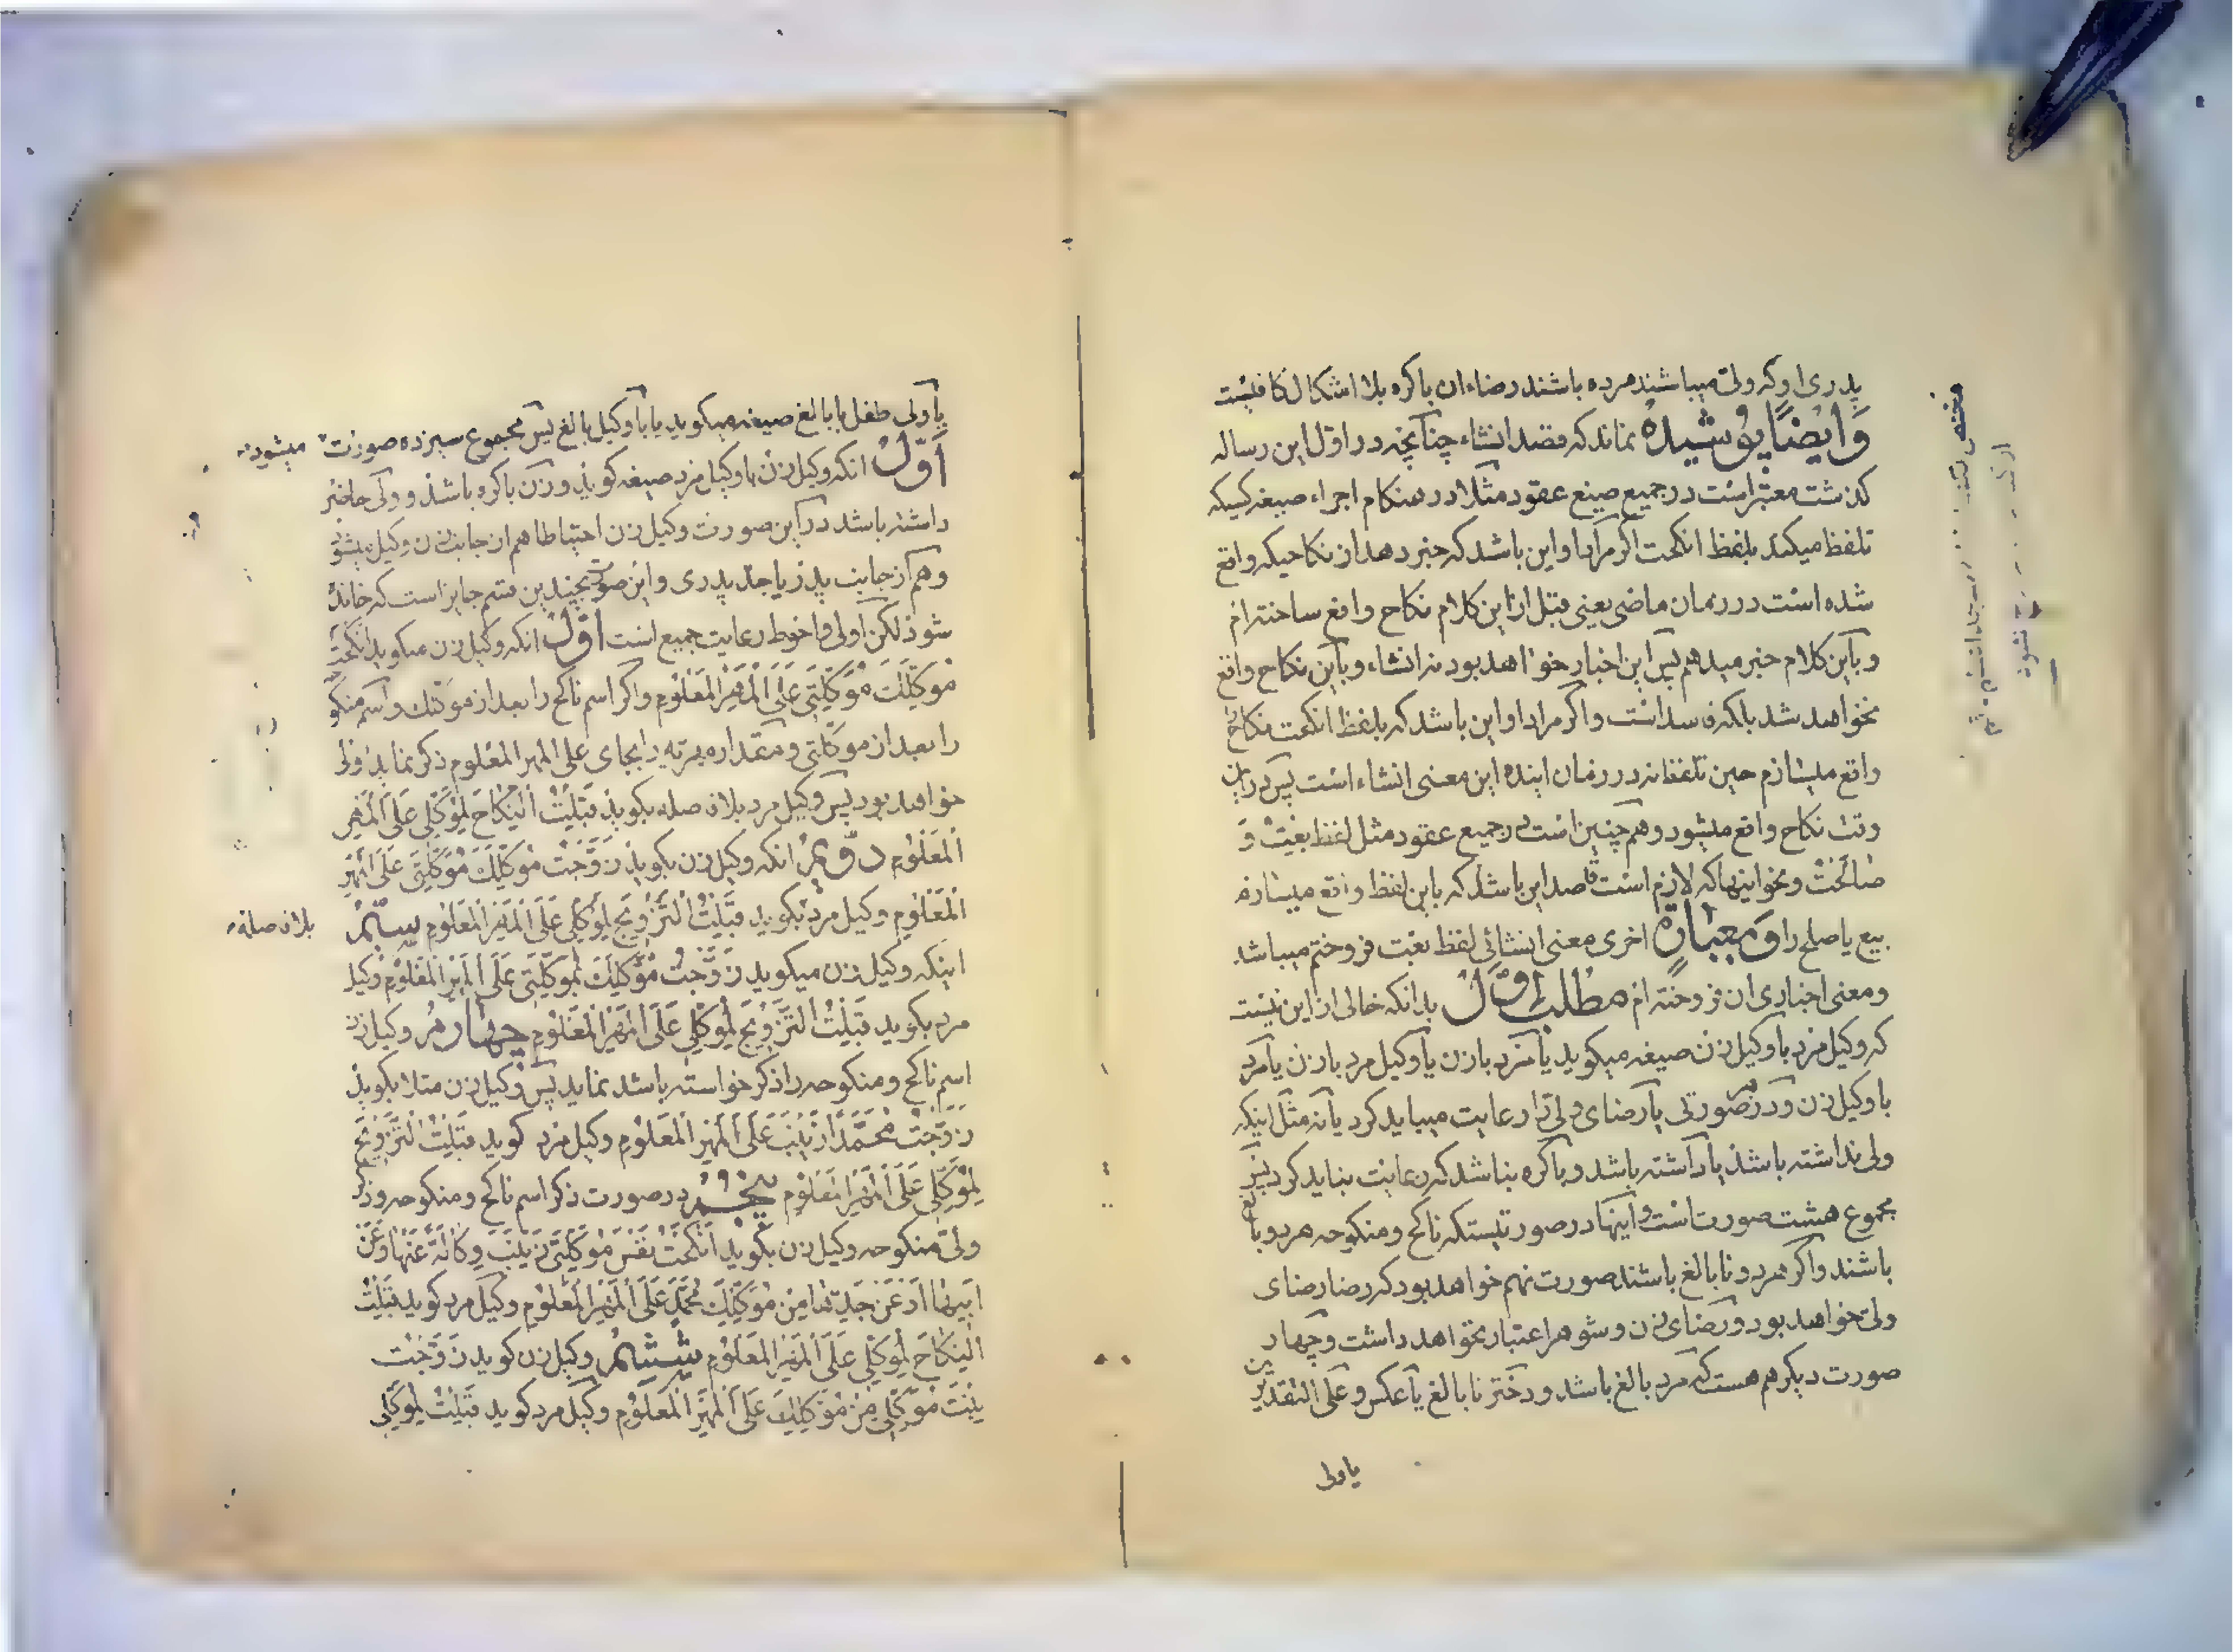 پدری او که ولی میباشند مرده باشند رضاء ان باکره بلا اشکال کافیست
وَاَیضًا پوشیده نماند که قصد انشاء چنانچه در اول این رساله
کذشت معتبر است در جمیع صیغ عقود مثلا در هنکام اجراء صیغه کسیکه
تلفظ میکند بلفظ انکحت اکر مراد او این باشد که خبر دهد از نکاحیکه واقع
شده است در زمان ماضی یعنی قبل از این کلام نکاح واقع ساخته ام
و باین کلام خبر میدهم پس این اخبار خواهد بود نه انشاء و باین نکاح واقع
نخواهد شد بلکه فاسد است و اکر مراد او این باشد که بلفظ انکحت نکاح
واقع میسازم حین تلفظ نه در زمان اینده این معنی انشاء است پس در این
وقت نکاح واقع میشود و هم چنین است در جمیع عقود مثل لفظ بعت و
صالحت و نحو اینها که لازم است قاصد این باشد که باین لفظ واقع میسازم
بیع یا صلح را وَبِعِبارَةٍ اخری معنی انشائی لفظ بعت فروختم میباشد
و معنی اخباری ان فروخته ام مطلب اوّل بدانکه خالی از این نیست
که وکیل مرد با وکیل زن صیغه میکوید یا مرد با زن یا وکیل مرد با زن یا مرد
با وکیل زن و در هر صورتی یا رضای ولی را رعایت میباید کرد یا نه مثل اینکه
ولی نداشته باشد یا داشته باشد و باکره نباشد که رعایت نباید کرد پس
مجموع هشت صورت است و اینها در صورتیستکه ناکح و منکوحه هر دو بالغ
باشند و اکر هر دو نابالغ باشند صورت نهم خواهد بود که رضا رضای
ولی خواهد بود و رضای زن و شوهر اعتبار نخواهد داشت و چهار
صورت دیکر هم هست که مرد بالغ باشد و دختر نابالغ یا عکس و علی التقدیرین
یا ولی
یا ولی طفل با بالغ صیغه میکوید یا با وکیل بالغ پس مجموع سیزده صورت میشود
اَوّلْ انکه وکیل زن با وکیل مرد صیغه کوید و زن باکره باشد و ولی حاضر
داشته باشد در این صورت وکیل زن احتیاطا هم از جانب زن وکیل میشود
و هم از جانب پدر یا جد پدری و این صورت بچندین قسم جایز است که خوانده
شود لکن اولی و احوط رعایت جمیع است اوّل انکه وکیل زن میکوید انکحت
موکلک موکلتی علی المهر المعلوم و اکر اسم ناکح را بعد از موکلک و اسم منکوحه
را بعد از موکلتی و مقدار مهریه را بجای علی المهر المعلوم ذکر نماید اولی
خواهد بود پس وکیل مرد بلا فاصله بکوید قَبِلْتُ النِّکاحَ لِمُوَکِّلی عَلَی الْمَهْرِ
الْمَعْلُومِ دوّم انکه وکیل زن بکوید زَوَّجْتُ مُوَکِّلَکَ مُوَکِّلَتی عَلَی الْمَهْرِ
الْمَعْلُومِ وکیل مرد بکوید قَبِلْتُ التَّزْویجَ لِمُوَکِّلی عَلَی الْمَهْرِ الْمَعْلُومِ سیّم
بلا فاصله
اینکه وکیل زن میکوید زَوَّجْتُ مُوَکِّلَکَ بِمُوَکِّلَتی عَلَی الْمَهْرِ الْمَعْلُومِ وکیل
مرد بکوید قَبِلْتُ التَّزْویجَ لِمُوَکِّلی عَلَی الْمَهْرِ الْمَعْلُومِ چهارم وکیل زن
اسم ناکح و منکوحه را ذکر خواسته باشد نماید پس وکیل زن مثلا بکوید
زَوَّجْتُ مُحَمَّدًا زَیْنَبَ عَلَی الْمَهْرِ الْمَعْلُومِ وکیل مرد کوید قَبِلْتُ التَّزْویجَ
لِمُوَکِّلی عَلَی الْمَهْرِ الْمَعْلُومِ پنجم در صورت ذکر اسم ناکح و منکوحه و ذکر
ولیّ منکوحه وکیل زن بکوید اَنْکَحْتُ نَفْسَ مُوَکِّلَتی زَیْنَبَ وِکالَةً عَنْها وَعَنْ
اَبیها اَوْ عَنْ جَدِّها مِنْ مُوَکِّلِکَ مُحَمَّدٍ عَلَی الْمَهْرِ الْمَعْلُومِ وکیل مرد کوید قَبِلْتُ
النِّکاحَ لِمُوَکِّلی عَلَی الْمَهْرِ الْمَعْلُومِ ششم وکیل زن کوید زَوَّجْتُ
بِنْتَ مُوَکِّلی مِنْ مُوَکِّلِکَ عَلَی الْمَهْرِ الْمَعْلُومِ وکیل مرد کوید قَبِلْتُ لِمُوَکِّلی